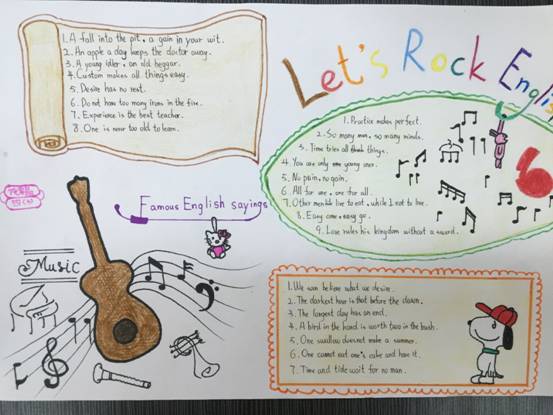 1. A fall into the pit, a gain in your wit.
2. An apple a day keeps the doctor away.
3. A young idler, an old beggar.
4. Custom makes all things easy.
5. Desire has no rest.
6. Do not have too many irons in the fire.
7. Experience is the best teacher.
8. One is never too old to learn.
Let's Rock English
1. Practice makes perfect.
2. So many men, so many minds.
3. Time tries all things.
4. You are only young once.
5. No pain, no gain.
6. All for one, one for all.
7. Other men live to eat, while I eat to live.
8. Easy come, easy go.
9. Love rules his kingdom without a sword.
Famous English sayings
Music
1. We soon believe what we desire.
2. The darkest hour is that before the dawn.
3. The longest day has an end.
4. A bird in the hand is worth two in the bush.
5. One swallow does not make a summer.
6. One cannot eat one's cake and have it.
7. Time and tide wait for no man.